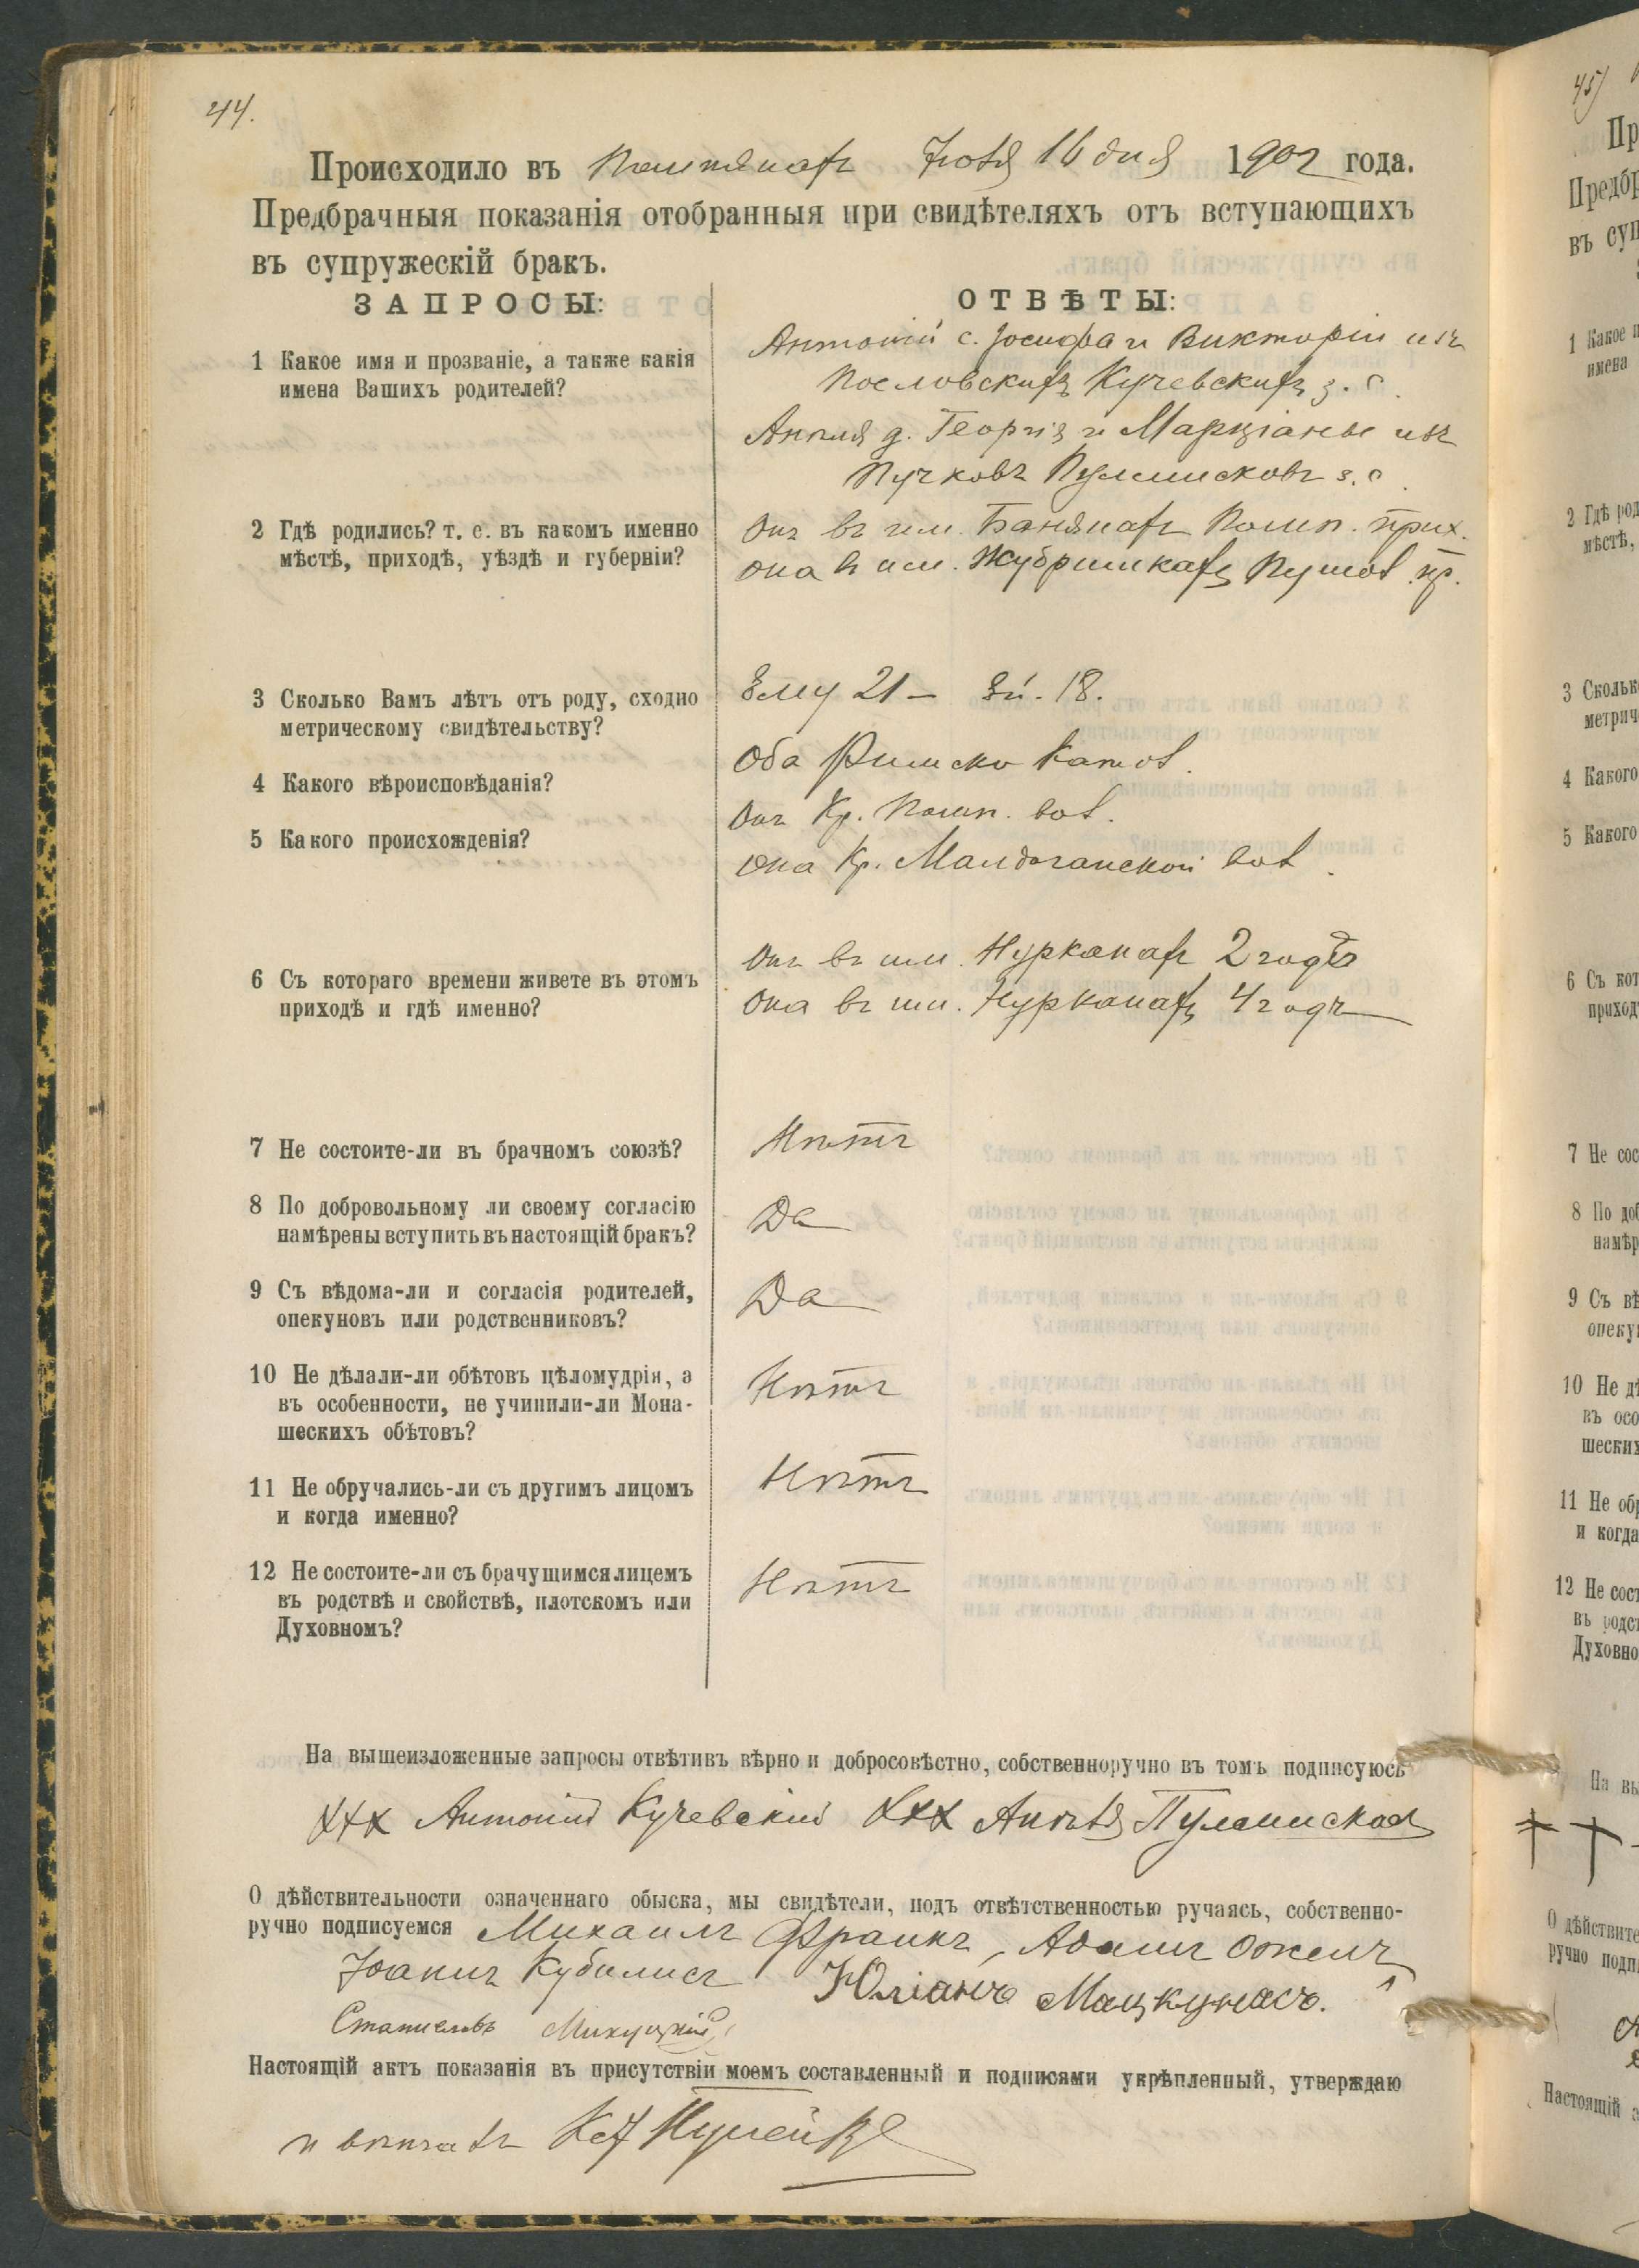 44.
Происходило въ Помпянахъ Іюля 16 дня 1902 года.
Предбрачныя показанія отобранныя при свидѣтеляхъ отъ вступающихъ
въ супружескій бракъ.
ЗАПРОСЫ:
ОТВѢТЫ:
1 Какое имя и прозваніе, а также какія
имена Вашихъ родителей?
Антоній с. Іосифа и Викторіи изъ
Пословскихъ Кучевскихъ з. с.
Анеля д. Георгія и Марціанны изъ
Пучковъ Пулшисковъ з. с.
2 Гдѣ родились? т. е. въ какомъ именно
мѣстѣ, приходѣ, уѣздѣ и губерніи?
Онъ въ им. Банянахъ Помп. прих.
Она въ им. Жубришкахъ пр.
3 Сколько Вамъ лѣтъ отъ роду, сходно
метрическому свидѣтельству?
Ему 21 — Ей. 18.
4 Какого вѣроисповѣданія?
Оба Римско Катол.
5 Какого происхожденія?
Онъ Кр. Помп. вол.
Она Кр. вол.
6 Съ котораго времени живете въ этомъ
приходѣ и гдѣ именно?
Онъ въ им. Нурканахъ 2 года
Она въ им. Нурканахъ 4 годъ
7 Не состоите-ли въ брачномъ союзѣ?
Нѣтъ
8 По добровольному ли своему согласію
намѣрены вступить въ настоящій бракъ?
Да
9 Съ вѣдома-ли и согласія родителей,
опекуновъ или родственниковъ?
Да
10 Не дѣлали-ли обѣтовъ цѣломудрія, а
въ особенности, не учинили-ли Мона-
шескихъ обѣтовъ?
Нѣтъ
11 Не обручались-ли съ другимъ лицомъ
и когда именно?
Нѣтъ
12 Не состоите-ли съ брачущимся лицемъ
въ родствѣ и свойствѣ, плотскомъ или
Духовномъ?
Нѣтъ
На вышеизложенные запросы отвѣтивъ вѣрно и добросовѣстно, собственноручно въ томъ подписуюсь
ххх Антоній Кучевскій ххх Анѣля Пулшиская
О дѣйствительности означеннаго обыска, мы свидѣтели, подъ отвѣтственностью ручаясь, собственно-
ручно подписуемся Михаилъ Франкъ, Адамъ
Іоаннъ Кубилисъ Юліанъ Мацкунасъ.
Станиславъ Микуцкій
Настоящій актъ показанія въ присутствіи моемъ составленный и подписями укрѣпленный, утверждаю
и вѣнчалъ